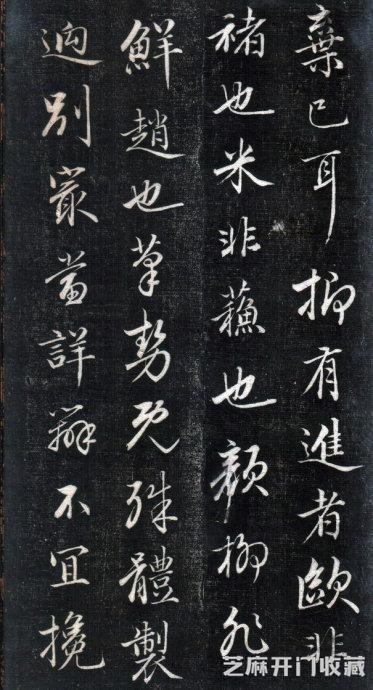 棄已耳抑有進者歐非
褚也米非蘇也顏柳非
鮮趙也筆勢既殊體製
迥別最當詳辨不宜攙
芝麻开门收藏